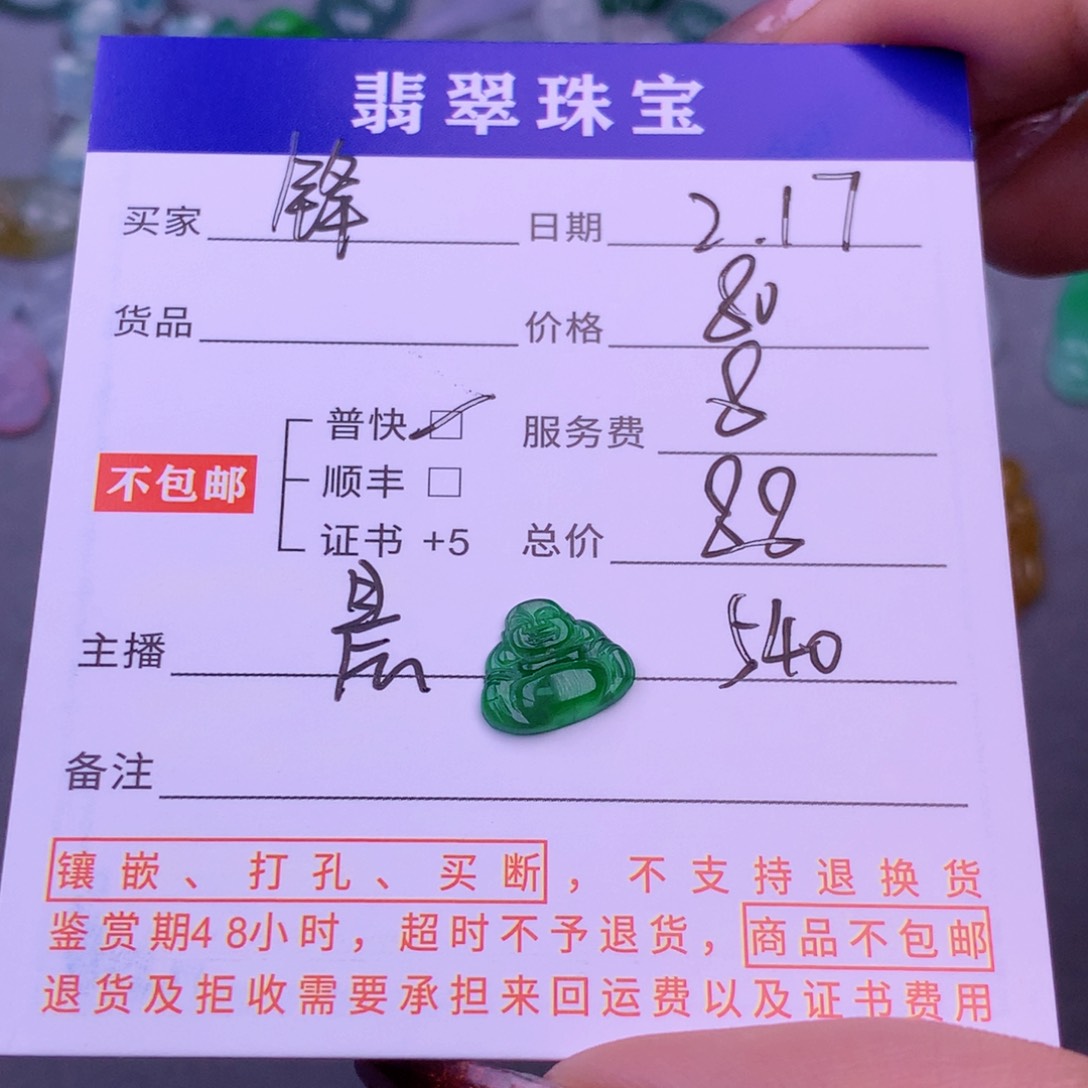 翡翠珠宝
买家 锋 日期 2.17
货品 价格 80
普快 服务费 8
不包邮 顺丰
证书 +5 总价 88
主播 晨 540
备注
镶嵌、打孔、买断，不支持退换货
鉴赏期48小时，超时不予退货，商品不包邮
退货及拒收需要承担来回运费以及证书费用